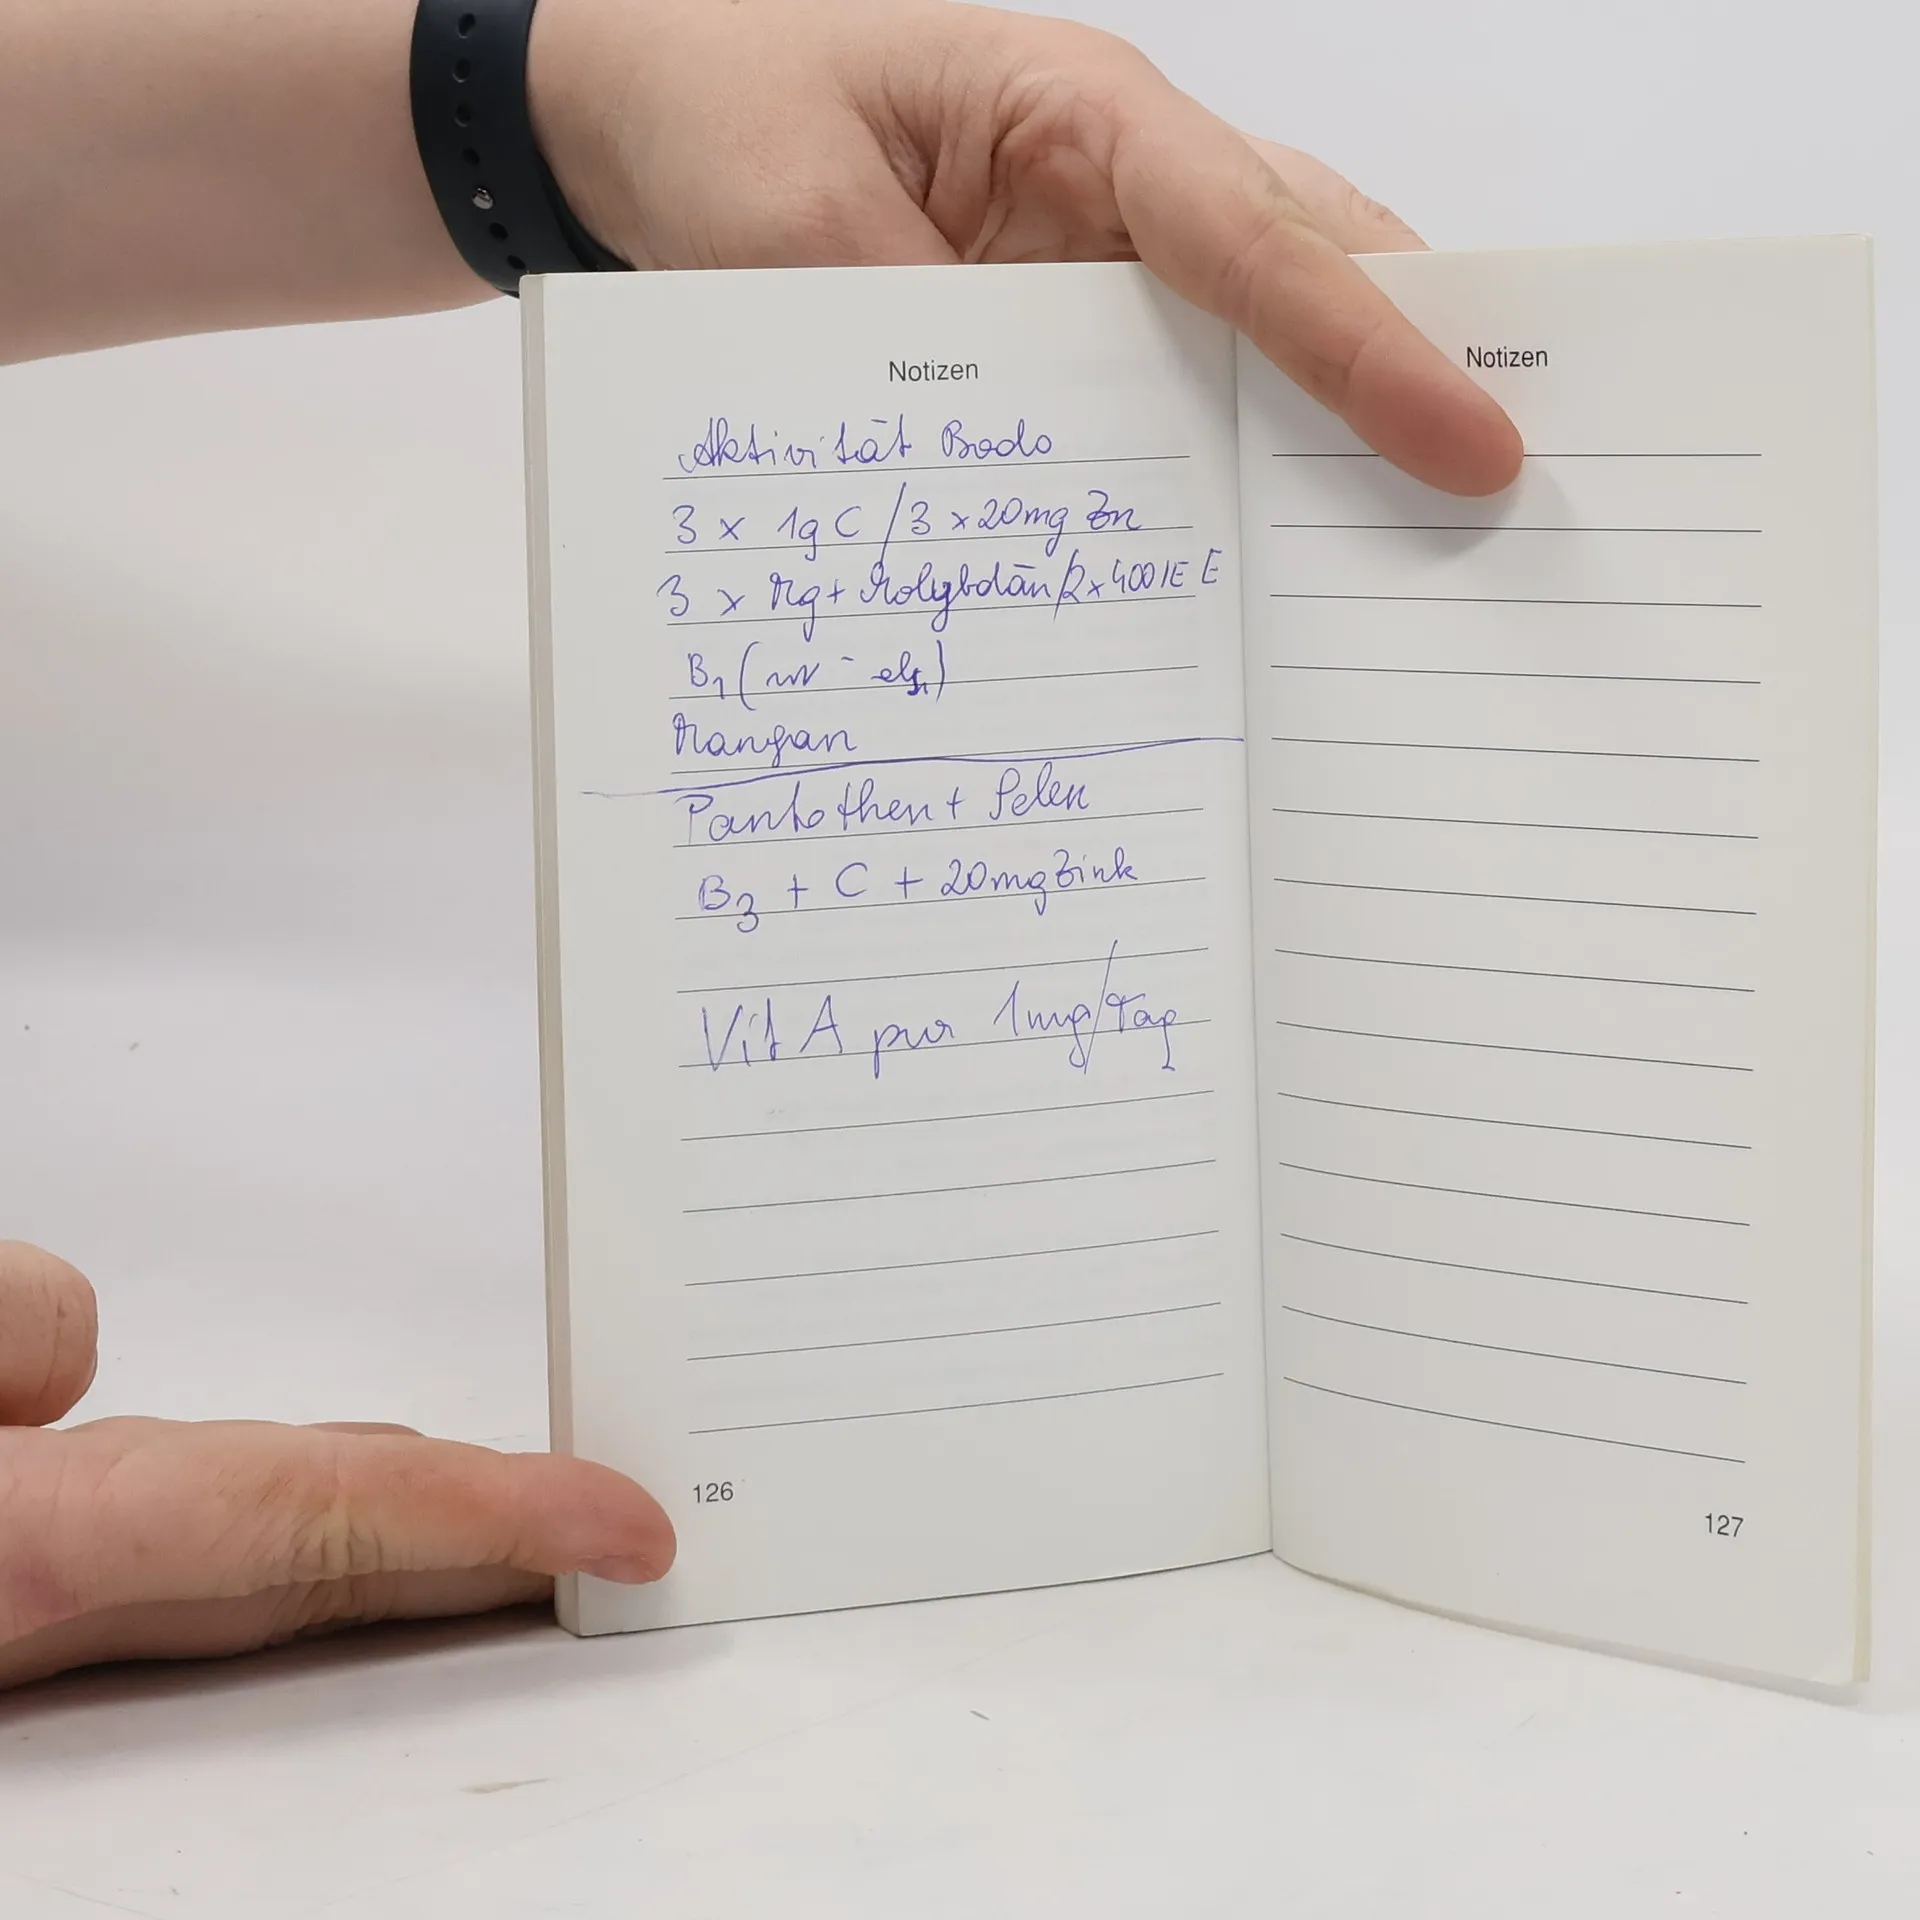 Notizen
Aktivität Bodo
3 x 1g C / 3 x 20mg Zn
3 x Mg + Molybdän / 2 x 400 IE E
B1 (
Mangan
Pantothen + Selen
B3 + C + 20mg Zink
Vit A pur 1mg/Tag
126
Notizen
127